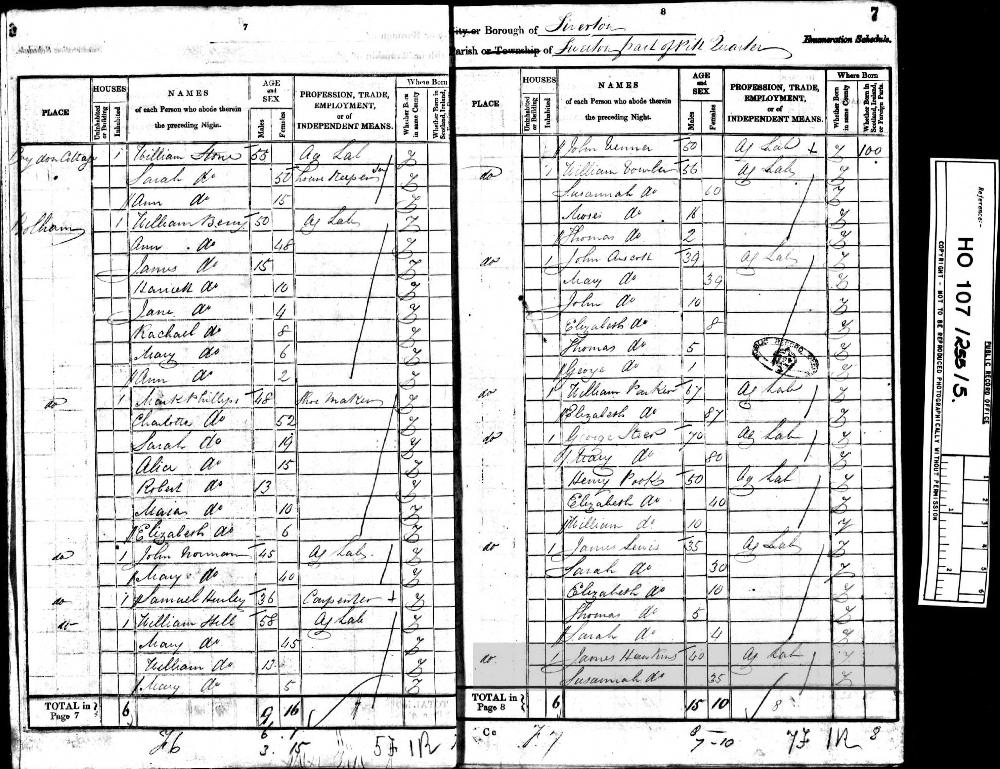 7
PLACE
HOUSES
Uninhabited or Building
Inhabited
NAMES
of each Person who abode therein the preceding Night.
AGE and SEX
Males
Females
PROFESSION, TRADE, EMPLOYMENT, or of INDEPENDENT MEANS.
Where Born
Whether Born in same County
Whether Born in Scotland, Ireland, or Foreign Parts.
1 William Stone 55 Ag Lab y
Sarah do 50 y
Ann do 15 y
Bolham 1 William Berry 50 Ag Lab y
Ann do 48 y
James do 15 y
Harriett do 10 y
Jane do 4 y
Rachael do 8 y
Mary do 6 y
Ann do 2 y
do 1 Mark Phillips 48 Shoe Maker y
Charlotte do 52 y
Sarah do 19 y
Alice do 15 y
Robert do 13 y
Maria do 10 y
Elizabeth do 6 y
do 1 John Norman 45 Ag Lab y
Mary do 40 y
do 1 Samuel Hurley 36 Carpenter y
do 1 William Hill 58 Ag Lab y
Mary do 45 y
William do 13 y
Mary do 5 y
TOTAL in Page 7 6 9 16
8
7
City or Borough of Tiverton
Parish or Township of Tiverton part of Pitt Quarter
Enumeration Schedule.
PLACE
HOUSES
Uninhabited or Building
Inhabited
NAMES
of each Person who abode therein the preceding Night.
AGE and SEX
Males
Females
PROFESSION, TRADE, EMPLOYMENT, or of INDEPENDENT MEANS.
Where Born
Whether Born in same County
Whether Born in Scotland, Ireland, or Foreign Parts.
John Venner 50 Ag Lab y 100
do 1 William Vowler 56 Ag Lab y
Susannah do 60 y
Moses do 16 y
Thomas do 2 y
do 1 John Ascott 39 Ag Lab y
Mary do 39 y
John do 10 y
Elizabeth do 8 y
Thomas do 5 y
George do 1 y
do 1 William Parker 67 Ag Lab y
Elizabeth do 87 y
do 1 George Steer 70 Ag Lab y
Mary do 80 y
Henry Pook 50 Ag Lab y
Elizabeth do 40 y
William do 10 y
do 1 James Lewis 35 Ag Lab y
Sarah do 30 y
Elizabeth do 10 y
Thomas do 5 y
Sarah do 4 y
do 1 James Hawkins 40 Ag Lab y
Susannah do 35 y
TOTAL in Page 8 6 15 10 8
Reference:-
HO 107 /255/5.
PUBLIC RECORD OFFICE
COPYRIGHT - NOT TO BE REPRODUCED PHOTOGRAPHICALLY WITHOUT PERMISSION